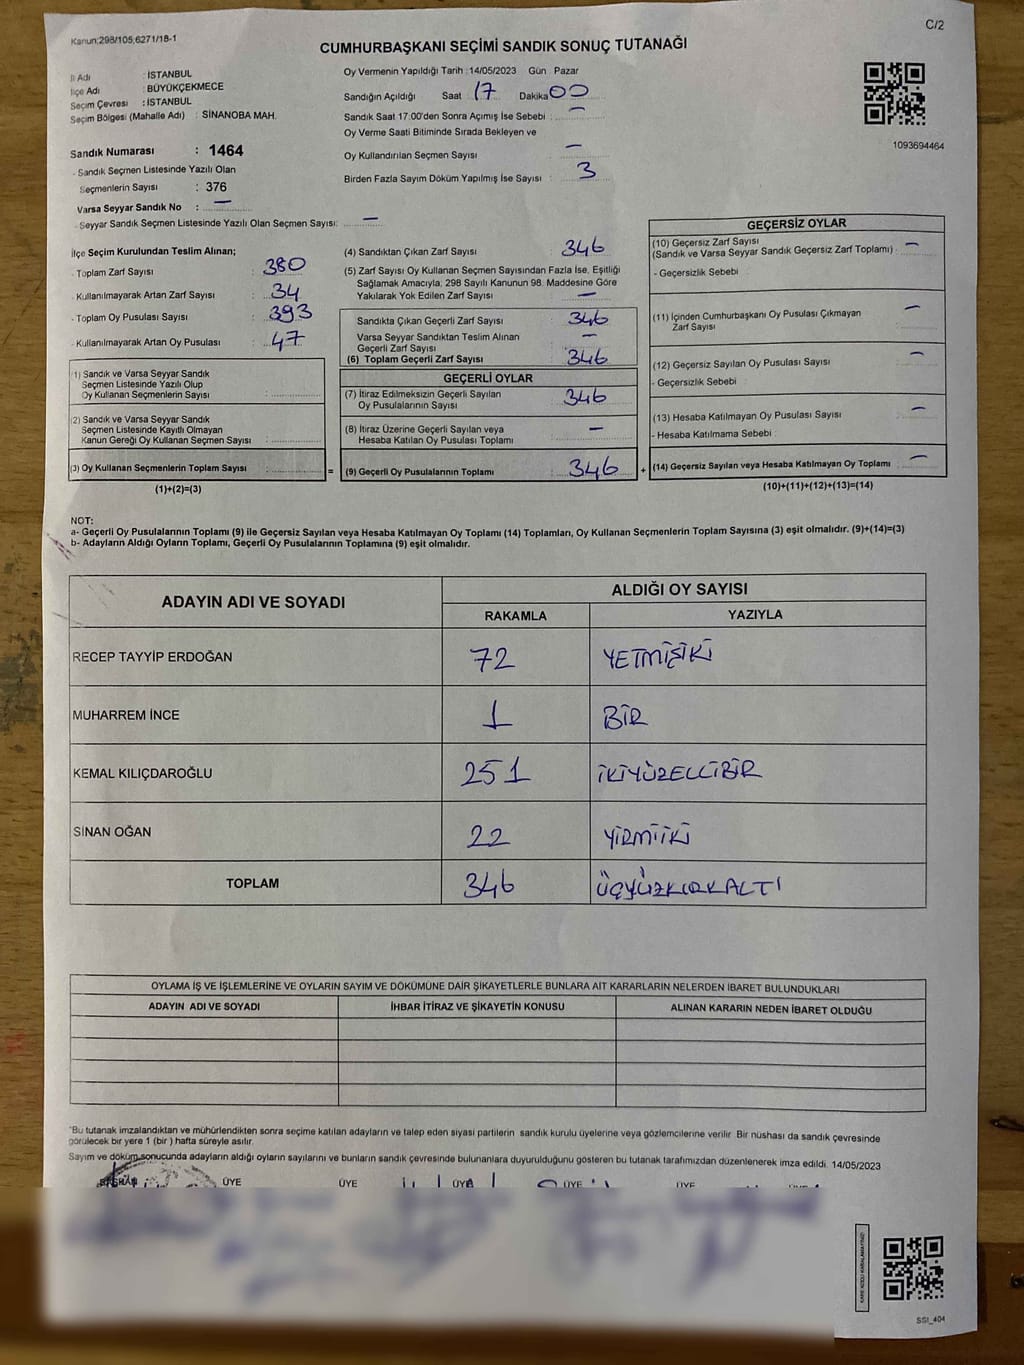 Kanun:298/105,6271/18-1
C/2
CUMHURBAŞKANI SEÇİMİ SANDIK SONUÇ TUTANAĞI
İl Adı : İSTANBUL
İlçe Adı : BÜYÜKÇEKMECE
Seçim Çevresi : İSTANBUL
Seçim Bölgesi (Mahalle Adı) : SİNANOBA MAH.
Sandık Numarası : 1464
- Sandık Seçmen Listesinde Yazılı Olan
Seçmenlerin Sayısı : 376
Varsa Seyyar Sandık No : —
- Seyyar Sandık Seçmen Listesinde Yazılı Olan Seçmen Sayısı: —
Oy Vermenin Yapıldığı Tarih :14/05/2023 Gün Pazar
Sandığın Açıldığı Saat 17 Dakika 00
Sandık Saat 17.00'den Sonra Açımış İse Sebebi : —
Oy Verme Saati Bitiminde Sırada Bekleyen ve
Oy Kullandırılan Seçmen Sayısı —
Birden Fazla Sayım Döküm Yapılmış İse Sayısı : 3
1093694464
İlçe Seçim Kurulundan Teslim Alınan;
- Toplam Zarf Sayısı : 380
- Kullanılmayarak Artan Zarf Sayısı : 34
- Toplam Oy Pusulası Sayısı : 393
- Kullanılmayarak Artan Oy Pusulası : 47
(1) Sandık ve Varsa Seyyar Sandık
Seçmen Listesinde Yazılı Olup
Oy Kullanan Seçmenlerin Sayısı :
(2) Sandık ve Varsa Seyyar Sandık
Seçmen Listesinde Kayıtlı Olmayan
Kanun Gereği Oy Kullanan Seçmen Sayısı :
(3) Oy Kullanan Seçmenlerin Toplam Sayısı : =
(1)+(2)=(3)
(4) Sandıktan Çıkan Zarf Sayısı : 346
(5) Zarf Sayısı Oy Kullanan Seçmen Sayısından Fazla İse, Eşitliği
Sağlamak Amacıyla; 298 Sayılı Kanunun 98. Maddesine Göre
Yakılarak Yok Edilen Zarf Sayısı : —
Sandıkta Çıkan Geçerli Zarf Sayısı : 346
Varsa Seyyar Sandıktan Teslim Alınan
Geçerli Zarf Sayısı : —
(6) Toplam Geçerli Zarf Sayısı : 346
GEÇERLİ OYLAR
(7) İtiraz Edilmeksizin Geçerli Sayılan
Oy Pusulalarının Sayısı : 346
(8) İtiraz Üzerine Geçerli Sayılan veya
Hesaba Katılan Oy Pusulası Toplamı : —
(9) Geçerli Oy Pusulalarının Toplamı : 346 +
GEÇERSİZ OYLAR
(10) Geçersiz Zarf Sayısı
(Sandık ve Varsa Seyyar Sandık Geçersiz Zarf Toplamı) : —
- Geçersizlik Sebebi :
(11) İçinden Cumhurbaşkanı Oy Pusulası Çıkmayan
Zarf Sayısı : —
(12) Geçersiz Sayılan Oy Pusulası Sayısı : —
- Geçersizlik Sebebi :
(13) Hesaba Katılmayan Oy Pusulası Sayısı : —
- Hesaba Katılmama Sebebi :
(14) Geçersiz Sayılan veya Hesaba Katılmayan Oy Toplamı : —
(10)+(11)+(12)+(13)=(14)
NOT:
a- Geçerli Oy Pusulalarının Toplamı (9) ile Geçersiz Sayılan veya Hesaba Katılmayan Oy Toplamı (14) Toplamları, Oy Kullanan Seçmenlerin Toplam Sayısına (3) eşit olmalıdır. (9)+(14)=(3)
b- Adayların Aldığı Oyların Toplamı, Geçerli Oy Pusulalarının Toplamına (9) eşit olmalıdır.
ADAYIN ADI VE SOYADI
ALDIĞI OY SAYISI
RAKAMLA YAZIYLA
RECEP TAYYİP ERDOĞAN 72 YETMİŞİKİ
MUHARREM İNCE 1 BİR
KEMAL KILIÇDAROĞLU 251 İKİYÜZELLİBİR
SİNAN OĞAN 22 YİRMİİKİ
TOPLAM 346 ÜÇYÜZKIRKALTI
OYLAMA İŞ VE İŞLEMLERİNE VE OYLARIN SAYIM VE DÖKÜMÜNE DAİR ŞİKAYETLERLE BUNLARA AİT KARARLARIN NELERDEN İBARET BULUNDUKLARI
ADAYIN ADI VE SOYADI İHBAR İTİRAZ VE ŞİKAYETİN KONUSU ALINAN KARARIN NEDEN İBARET OLDUĞU
*Bu tutanak imzalandıktan ve mühürlendikten sonra seçime katılan adayların ve talep eden siyasi partilerin sandık kurulu üyelerine veya gözlemcilerine verilir Bir nüshası da sandık çevresinde
görülecek bir yere 1 (bir ) hafta süreyle asılır.
Sayım ve döküm sonucunda adayların aldığı oyların sayılarını ve bunların sandık çevresinde bulunanlara duyurulduğunu gösteren bu tutanak tarafımızdan düzenlenerek imza edildi. 14/05/2023
BAŞKAN ÜYE ÜYE ÜYE ÜYE ÜYE
SSI_404